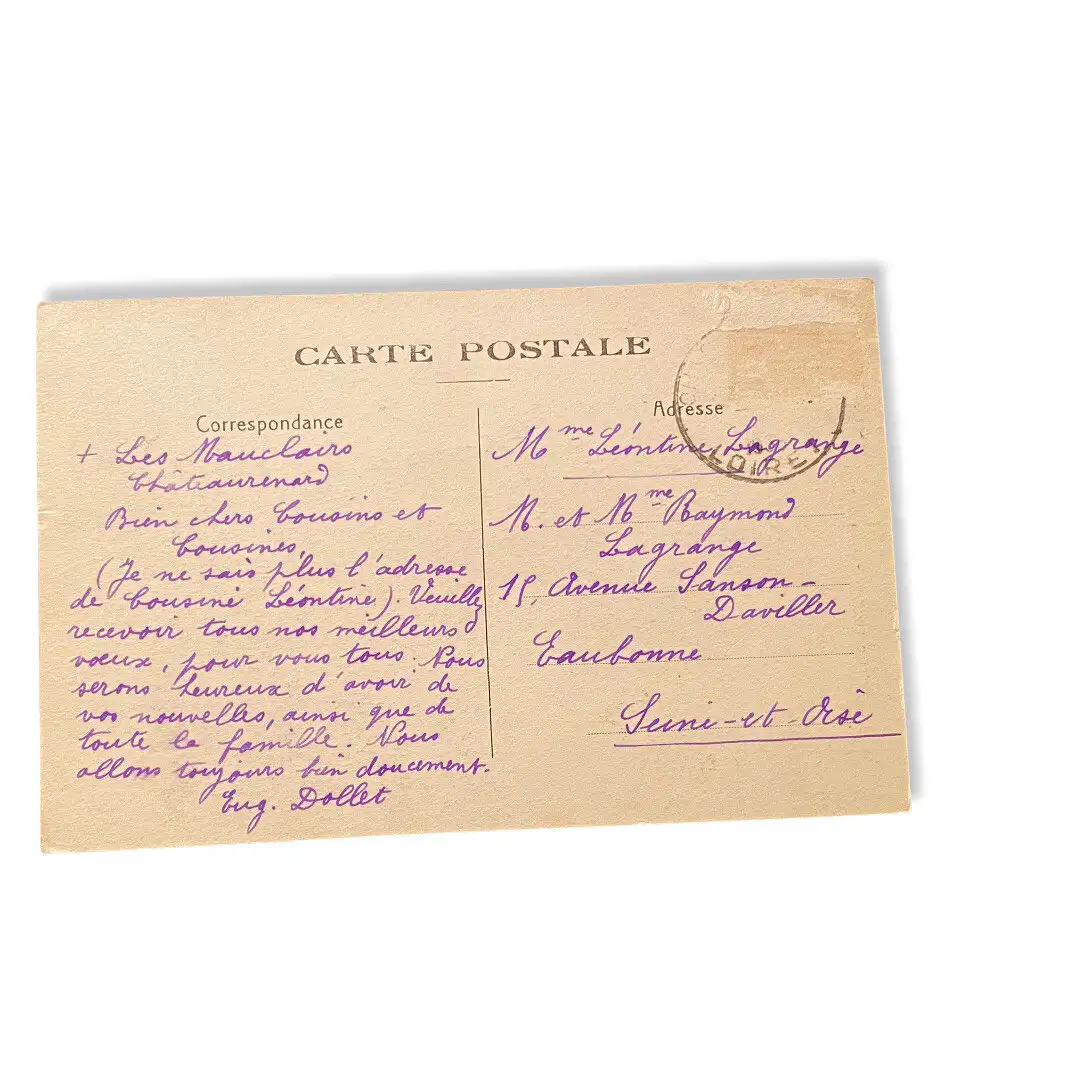 CARTE POSTALE
Correspondance
+ Les Mauclairs
Châteaurenard
Bien chers Cousins et
Cousines,
(Je ne sais plus l'adresse
de Cousine Léontine). Veuillez
recevoir tous nos meilleurs
vœux, pour vous tous. Nous
serons heureux d'avoir de
vos nouvelles, ainsi que de
toute la famille. Nous
allons toujours bien doucement.
Eug. Dollet
Adresse
LOIRET
Mme Léontine Lagrange
M. et Mme Raymond
Lagrange
15, Avenue Sanson-
Daviller
Eaubonne
Seine-et-Oise